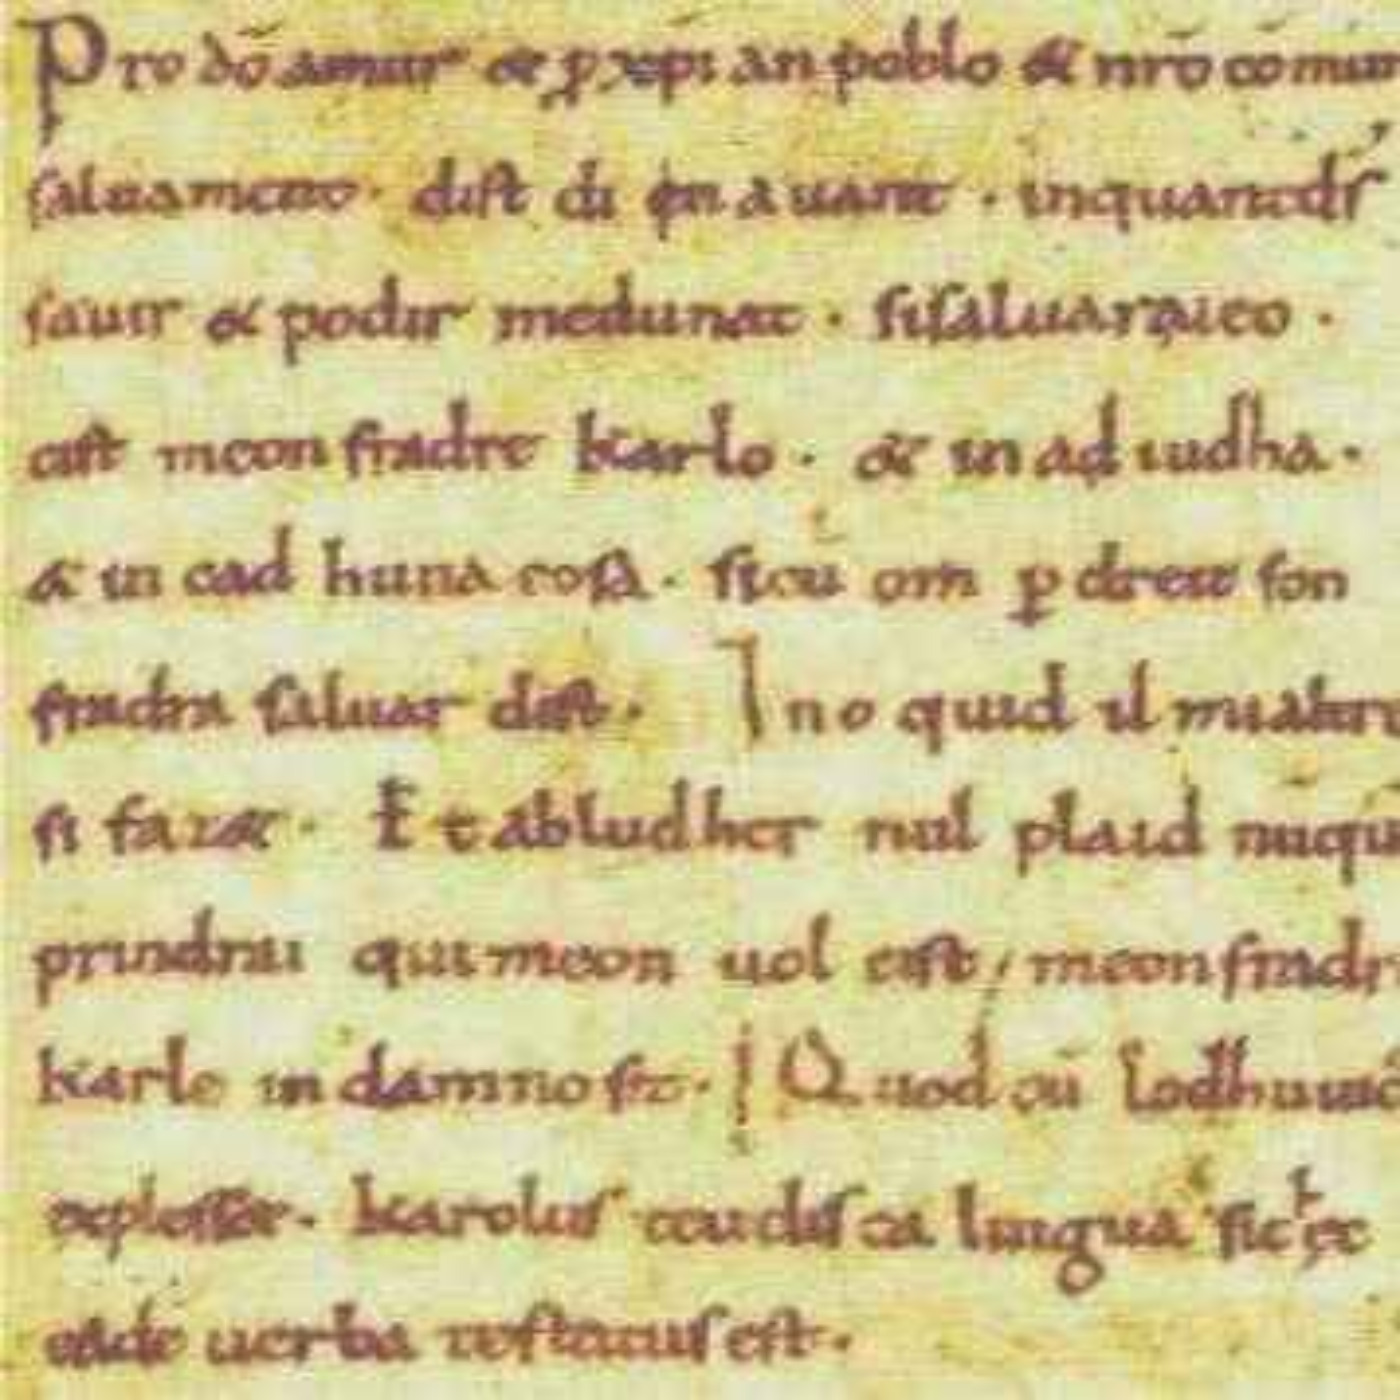 Pro dō amur & ꝑ xp̄i an poblo & nr̄o cōmun
saluament. dist di en auant. inquantd̄s
sauir & podir medunat. sisaluaraieo.
cist meon fradre Karlo. & in ad iudha.
& in cad huna cosa. sicū om ꝑ dreit son
fradra saluar dist. Ino quid il mialtre
si fazet. Et abludher nul plaid nūquā
prindrai qui meon uol cist, meonfradre
Karle in damno sit. Quod cū Lodhuuic
explesset. Karolus teudisca lingua sic ec
eadē uerba testatus est.